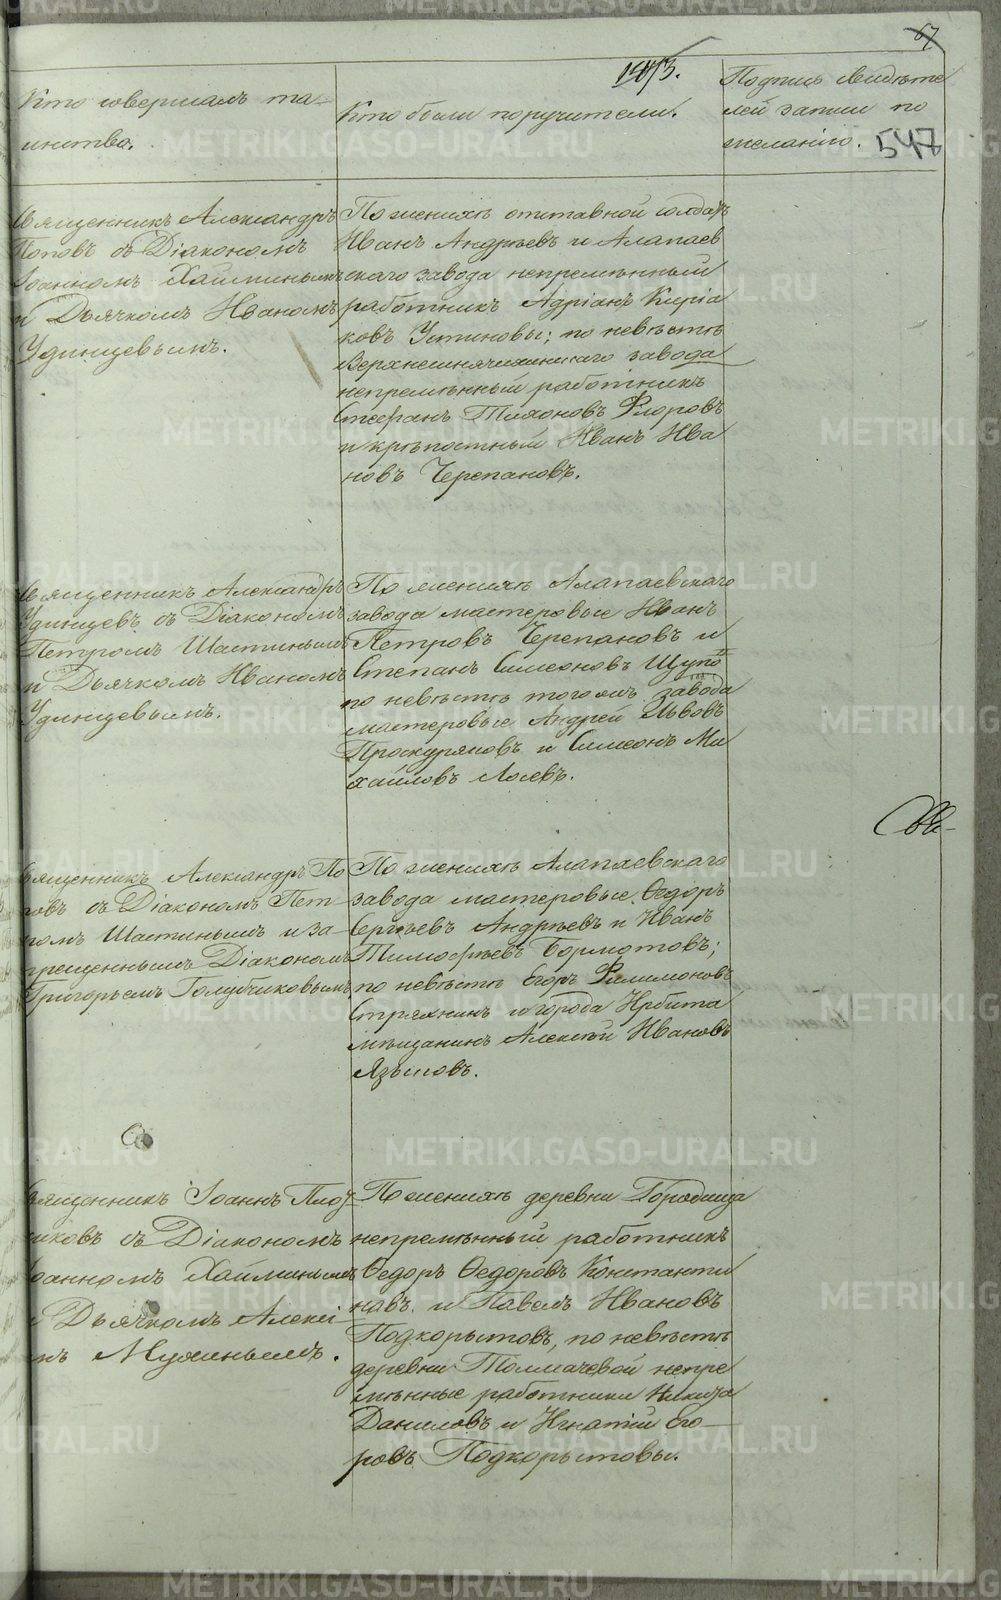 67
1843.
Кто совершалъ та-
инство.
Кто были поручители.
Подпись свидѣте
лей записи по
желанію.
547
Священникъ Александръ
Поповъ съ Діакономъ
Іоанномъ Хайминымъ
и Дьячкомъ Иваномъ
Удинцевымъ.
По женихѣ отставной солдатъ
Иванъ Андрѣевъ и Алапаев
скаго завода непремѣнный
работникъ Адріанъ Киріа
ковъ Устиновы; по невѣстѣ
Верхнесинячихинскаго завода
непремѣнный работникъ
Стефанъ Тихоновъ Флоровъ
и крѣпостный Иванъ Ива
новъ Черепановъ.
Священникъ Александръ
Удинцевъ съ Діакономъ
Петромъ Шастинымъ
и Дьячкомъ Иваномъ
Удинцевымъ.
По женихѣ Алапаевскаго
завода мастеровые Иванъ
Петровъ Черепановъ и
Степанъ Симеоновъ
по невѣстѣ тогожъ завода
мастеровые Андрей Львовъ
Проскуряковъ и Симеонъ Ми
хайловъ Лосевъ.
Священникъ Александръ По
повъ съ Діакономъ Пет
ромъ Шастинымъ и за-
прещеннымъ Діакономъ
Григорьемъ Голубчиковымъ
По женихѣ Алапаевскаго
завода мастеровые Ѳедоръ
Сергѣевъ Андрѣевъ и Иванъ
Тимофѣевъ Бормотовъ;
по невѣстѣ Егоръ Филимоновъ
Стряхнинъ и города Ирбита
мѣщанинъ Алексѣй Ивановъ
Языковъ.
Священникъ Іоаннъ Плот
никовъ съ Діакономъ
Іоанномъ Хайминымъ
и Дьячкомъ Алексі
емъ Мухинымъ.
По женихѣ деревни Городища
непремѣнный работникъ
Ѳедоръ Ѳедоровъ Константи
новъ и Павелъ Ивановъ
Подкорытовъ, по невѣстѣ
деревни Толмачевой непре
мѣнные работники Никита
Даниловъ и Игнатій Его
ровъ Подкорытовы.
METRIKI.GASO-URAL.RU